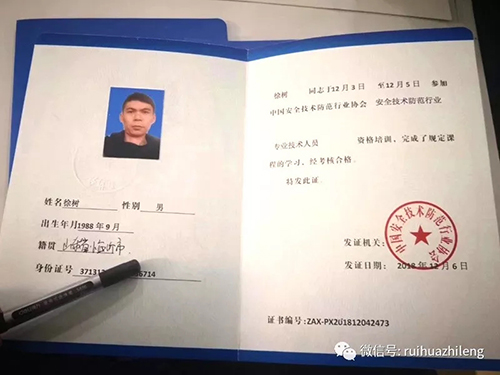 姓名 徐树 性别 男
出生年月 1988 年 9 月
籍贯 山东省临沂市
身份证号 371312 6714
徐树 同志于12 月 3 日 至12 月 5 日 参加
中国安全技术防范行业协会 安全技术防范行业
专业技术人员 资格培训，完成了规定课
程的学习，经考核合格。
特发此证。
中国安全技术防范行业协会
发证机关：
发证日期： 2018 年 12 月 6 日
证书编号：ZAX-PX201812042473
微信号: ruihuazhileng